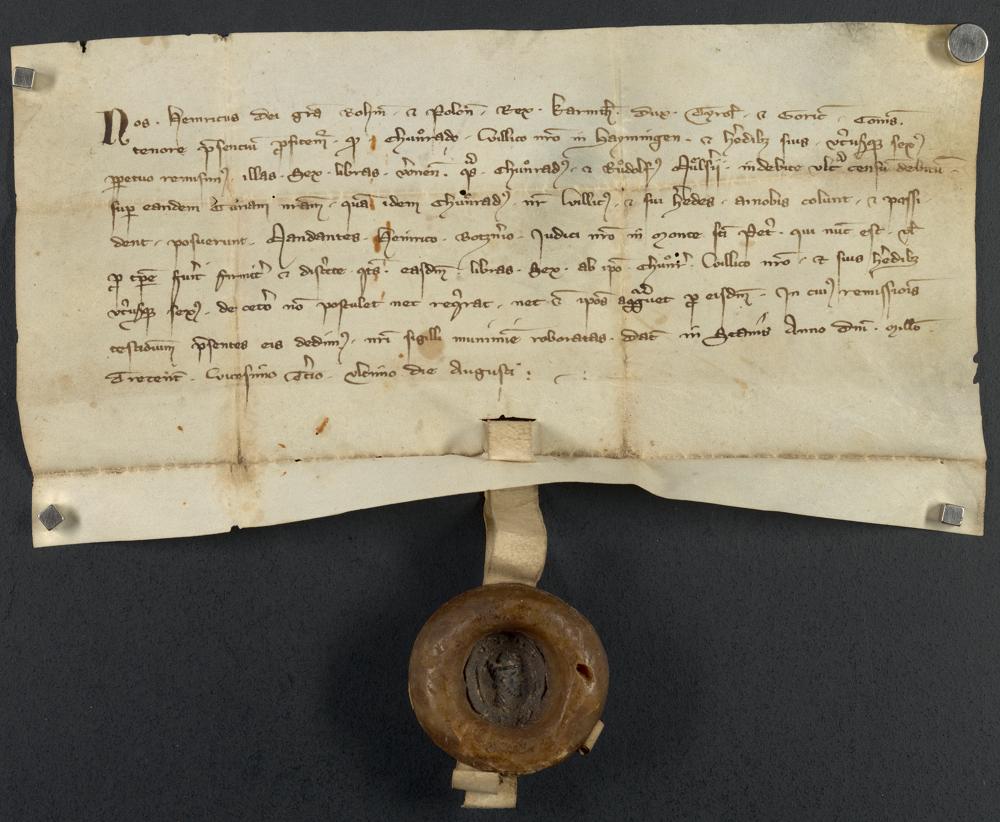 Nos · Heinricus dei gr̄a Bohem̄ · & Polon̄ · Rex · Karinth̄ · Dux · Tyrol̄ · & Goric̄ · Comes ·
tenore p̄senciū p̄fitem̄ · qᷓ · Chůnrado · villico nr̄o in Haymingen · & h̄edibꝫ suis · vtr̄usqꝫ sexꝰ
ꝑpetuo remisimꝰ illas · Sex · libras · v̄onen̄ · qᷓs · Chůnradꝰ · & Růdolfꝰ · indebite vltᷓ censū debitū ·
suꝑ eandem Curiam nr̄am · quā idem Chůnradꝰ · nr̄ villicꝰ · & sui h̄edes · a nobis colunt · & possi
dent · posuerunt · Mandantes · Heinrico · Botzn̄io · Judici nr̄o in monte sc̄i Pet̄ · qui nūc est · vl̄
ꝓ tꝑe fūit firmit̄ & distc̄te qᷓts · easdm̄ · libras · Sex · ab ipō Chůnr̄ · villico nr̄o · & suis h̄edibꝫ
vtr̄usqꝫ sexꝰ · de cet̄o nō postulet nec reqᷓrat · nec ipos agg̈uet ꝓ eisdm̄ · In cuiꝰ remissiōis
testiōium p̄sentes eis dedimꝰ · nr̄i sigilli munimīe roboratas · dat̄ · in Stams Anno dn̄i · Millō
Trecent̄ · vicesimo Tc̄io · vltimo die Augusti :